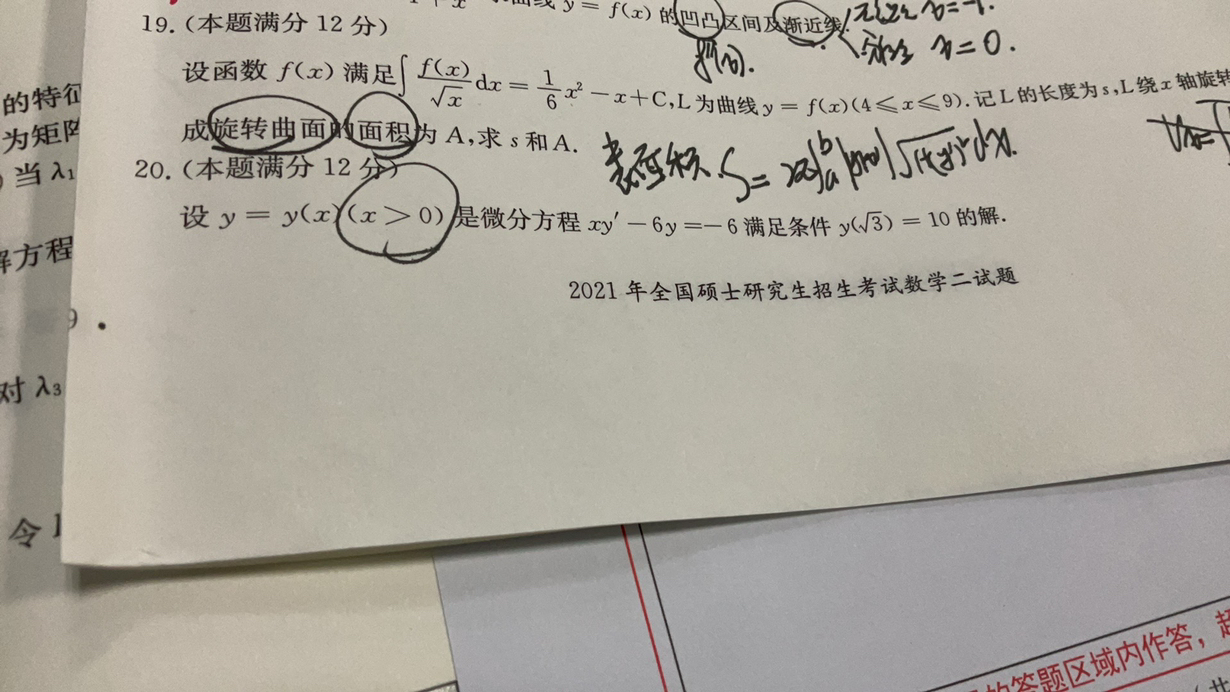 y = f(x) 的凹凸区间及渐近线.
y=-1.
19. (本题满分 12 分)
x=0.
f''(x).
设函数 f(x) 满足∫ f(x)/√x dx = 1/6 x² - x + C, L 为曲线 y = f(x)(4 ≤ x ≤ 9). 记 L 的长度为 s, L 绕 x 轴旋转
成旋转曲面的面积为 A, 求 s 和 A.
20. (本题满分 12 分)
设 y = y(x)(x > 0) 是微分方程 xy′ - 6y = -6 满足条件 y(√3) = 10 的解.
2021 年全国硕士研究生招生考试数学二试题
的特征
为矩阵
当 λ₁
解方程
9.
对 λ₃
令
的答题区域内作答,